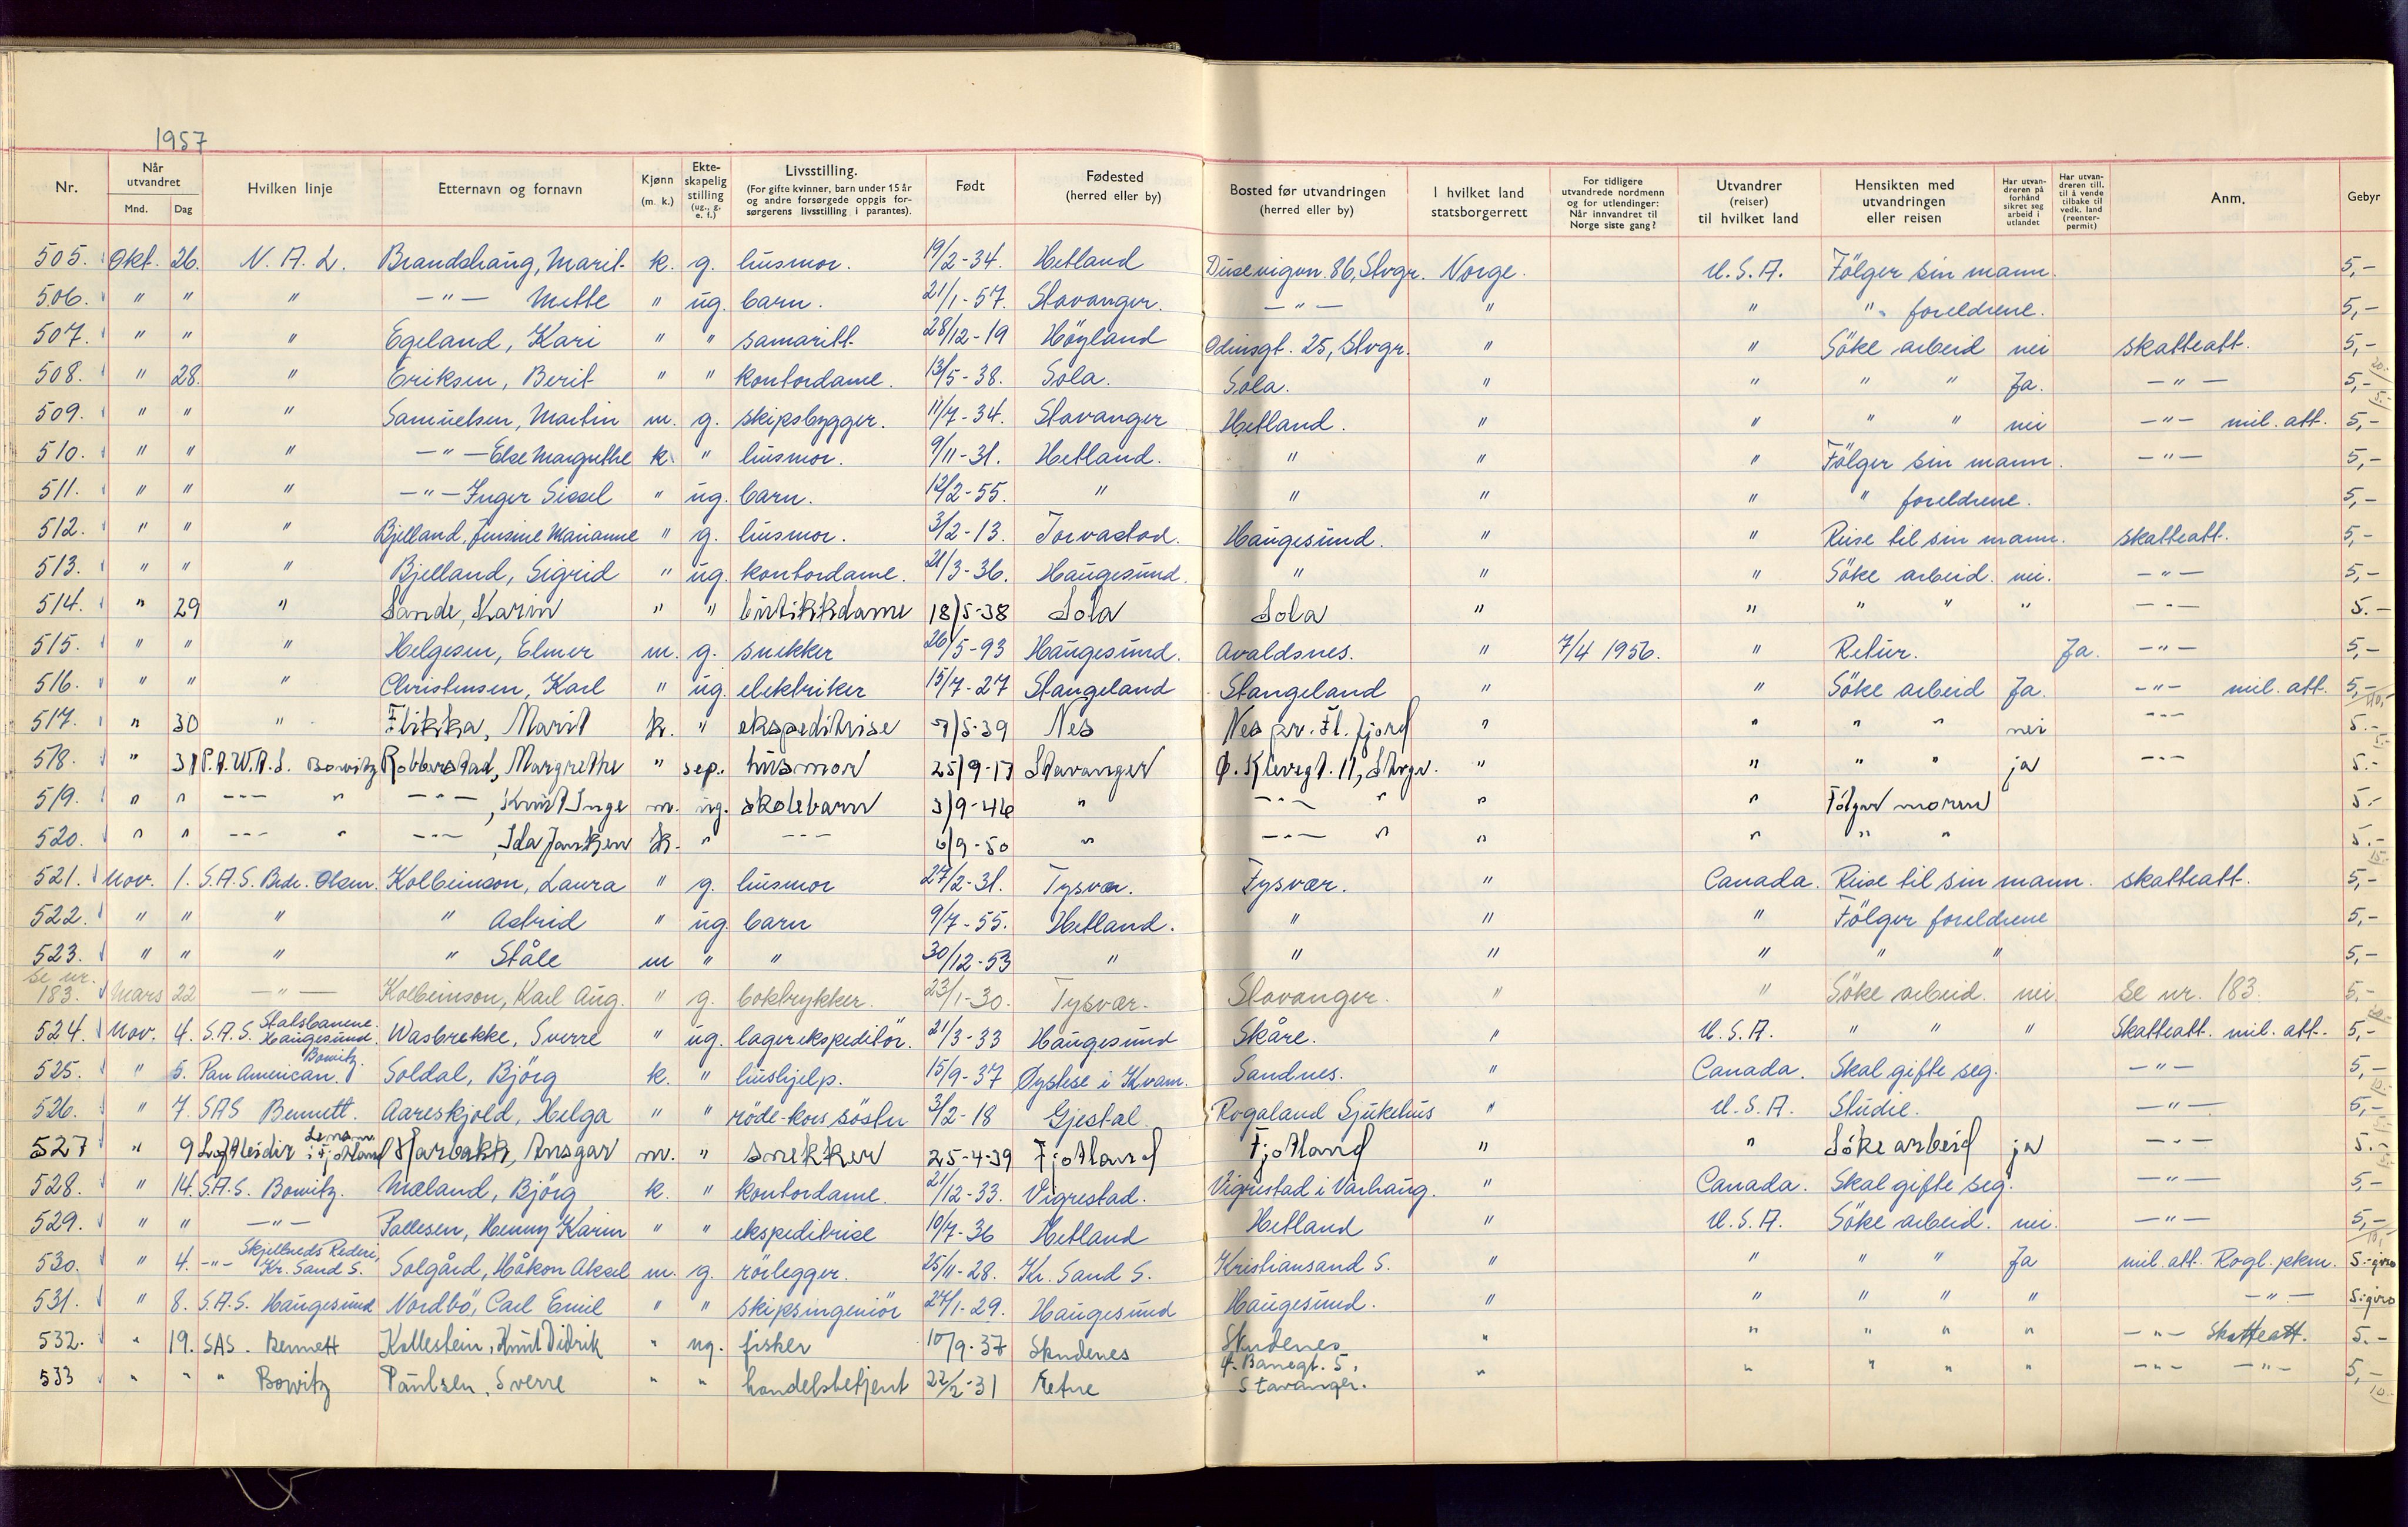 1957
Nr. Når utvandret Mnd. Dag Hvilken linje Etternavn og fornavn Kjønn (m. k.) Ekteskapelig stilling (ug., g. e. f.) Livsstilling. (For gifte kvinner, barn under 15 år og andre forsørgede oppgis forsørgerens livsstilling i parantes). Født Fødested (herred eller by) Bosted før utvandringen (herred eller by) I hvilket land statsborgerrett For tidligere utvandrede nordmenn og for utlendinger: Når innvandret til Norge siste gang? Utvandrer (reiser) til hvilket land Hensikten med utvandringen eller reisen Har utvandreren på forhånd sikret seg arbeid i utlandet Har utvandreren till. til å vende tilbake til vedk. land (reenterpermit) Anm. Gebyr
505. Okt. 26. N. A. L. Brandshaug, Marit k. g. husmor. 19/2-34. Hetland Dusevigvn. 86, Stvgr. Norge. U.S.A. Fölger sin mann. 5,-
506. " " " -"- Mette " ug. barn. 21/1-57. Stavanger. -"- " " " foreldrene. 5,-
507. " " " Egeland, Kari " " samaritt 28/12-19 Höyland Odinsgt. 25, Stvgr. " " Söke arbeid nei skatteatt. 5,-
508. " 28. " Eriksen, Berit " " kontordame. 13/5-38. Sola. Sola. " " " " Ja. -"- 5,-
509. " " " Samuelsen, Martin m. g. skipsbygger. 11/7-34. Stavanger Hetland. " " " " nei -"- mil. att. 5,-
510. " " " -"- Else Margrethe k. " husmor. 9/11-31. Hetland. " " " Fölger sin mann. -"- 5,-
511. " " " -"- Inger Sissel " ug. barn. 12/2-55. " " " " " foreldrene. 5,-
512. " " " Bjelland, Jensine Marianne " g. husmor. 3/2-13. Torvastad. Haugesund. " " Reise til sin mann. skatteatt. 5,-
513. " " " Bjelland, Sigrid " ug. kontordame. 21/3-36. Haugesund. " " " Söke arbeid. nei. -"- 5,-
514. " 29 " Sande, Karin " " butikkdame 18/5-38 Sola Sola " " " " " -"- 5.-
515. " " " Helgesen, Elmer m. g. snekker 26/5-93 Haugesund. Avaldsnes. " 7/4 1956. " Retur. Ja. -"- 5,-
516. " " " Christensen, Karl " ug. elektriker 15/7-27 Stangeland Stangeland " " Söke arbeid Ja. -"- mil. att. 5,-
517. " 30 " Flikka, Marit k. " ekspeditrise 7/5-39 Nes Nes pr. Fl. fjord " " " " nei -"- 5.-
518. " 31 P.A.W.A.S. Bowitz Robberstad, Margrethe " sep. husmor 25/9-17 Stavanger Ø. Klevegt. 11, Stvgr. " " " " ja -"- 5.-
519. " " -"- " -"-, Knut Inge m. ug. skolebarn 3/9-46 " -"- " " " Følger moren 5.-
520. " " -"- " -"-, Ida k. " -"- 6/9-50 " -"- " " " " " 5.-
521. Nov. 1. S.A.S. Brdr. Olsen. Kolbeinson, Laura " g. husmor 27/2-31. Tysvær. Tysvær. " Canada. Reise til sin mann. skatteatt. 5,-
522. " " " " Astrid " ug. barn 9/7-55. Hetland. " " " Fölger foreldrene 5,-
523. " " " " Ståle m " " 30/12-53 " " " " " " 5,-
se nr. 183. Mars 22 -"- Kolbeinson, Karl Aug. " g. boktrykker. 23/1-30. Tysvær. Stavanger. " " Söke arbeid. nei. Se nr. 183. 5,-
524. Nov. 4. S.A.S. Statsbanene. Haugesund. Wasbrekke, Sverre " ug. lagerekspeditör. 21/3-33 Haugesund Skåre. " U.S.A. " " " Skatteatt. mil. att. 5,-
525. " 5. Pan American. Bowitz. Soldal, Björg k. " hushjelp. 15/9-37 Øystese i Kvam. Sandnes. " Canada. Skal gifte seg. -"- 5,-
526. " 7. SAS Bennett. Aareskjold, Helga " " röde-kors söster 3/2-18 Gjestal. Rogaland Sjukehus " U.S.A. Studie. -"- 5,-
527 " 9 Lensm. i Fjotland Harbakk, Ansgar m. " snekker 25-4-39 Fjotland Fjotland " " Söke arbeid ja -"- 5.-
528. " 14. S.A.S. Bowitz. Mæland, Björg k. " kontordame. 21/12-33. Vigrestad. Vigrestad i Varhaug. " Canada. Skal gifte seg. -"- 5,-
529. " " -"- Pallesen, Henny Karin " " ekspeditrise 10/7-36 Hetland Hetland " U.S.A. Söke arbeid. nei. -"- 5,-
530. " 4. -"- Skjelbreds Rederi, Kr. Sand S. Solgård, Håkon Aksel m. g. rörlegger. 25/11-28. Kr. Sand S. Kristiansand S. " " " " Ja mil. att. Rogl. pkm. 5.- giro
531. " 8. S.A.S. Haugesund Nordbö, Carl Emil " " skipsingeniör 27/1-29. Haugesund Haugesund. " " " " " -"- 5.- giro
532. " 19. SAS. Bennett Kallestein, Knut Didrik " ug. fisker 10/9-37 Skudenes Skudenes " " " " " -"- Skatteatt. 5.-
533 " " " Bowitz Paulsen, Sverre " " handelsbetjent 22/2-31 Etne Banegt. 5, Stavanger. " " " " " -"- -"- 5,-